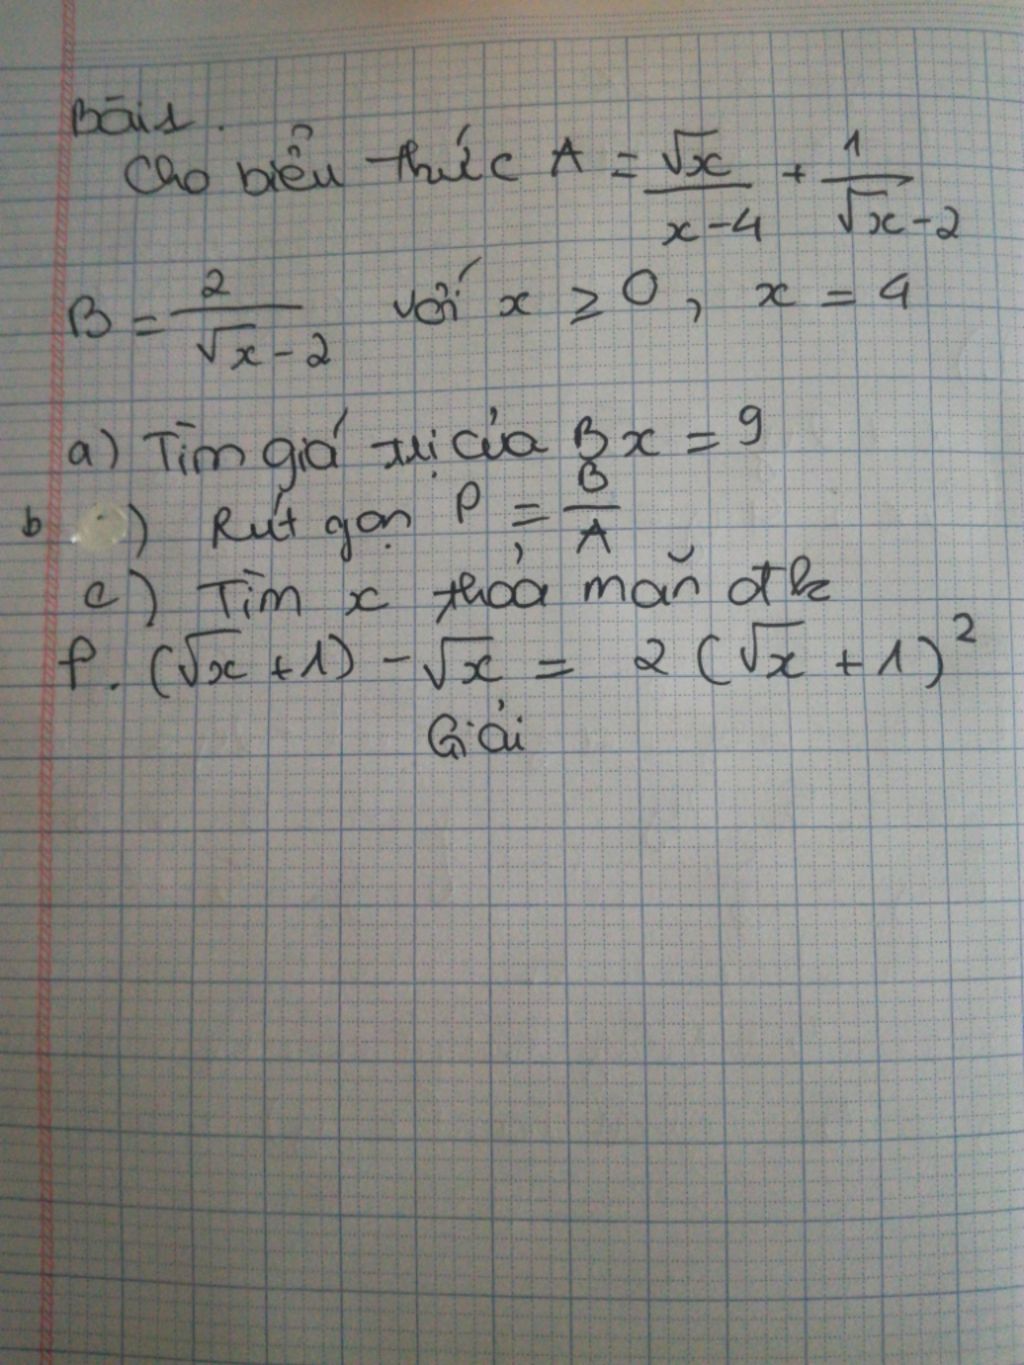 Bài 1.
Cho biểu thức A = √x / x-4 + 1 / √x-2
B = 2 / √x-2 với x ≥ 0, x = 4
a) Tìm giá trị của B x = 9
b ) Rút gọn P = B / A
c) Tìm x thỏa mãn đk
P. (√x +1) - √x = 2 (√x + 1)²
Giải